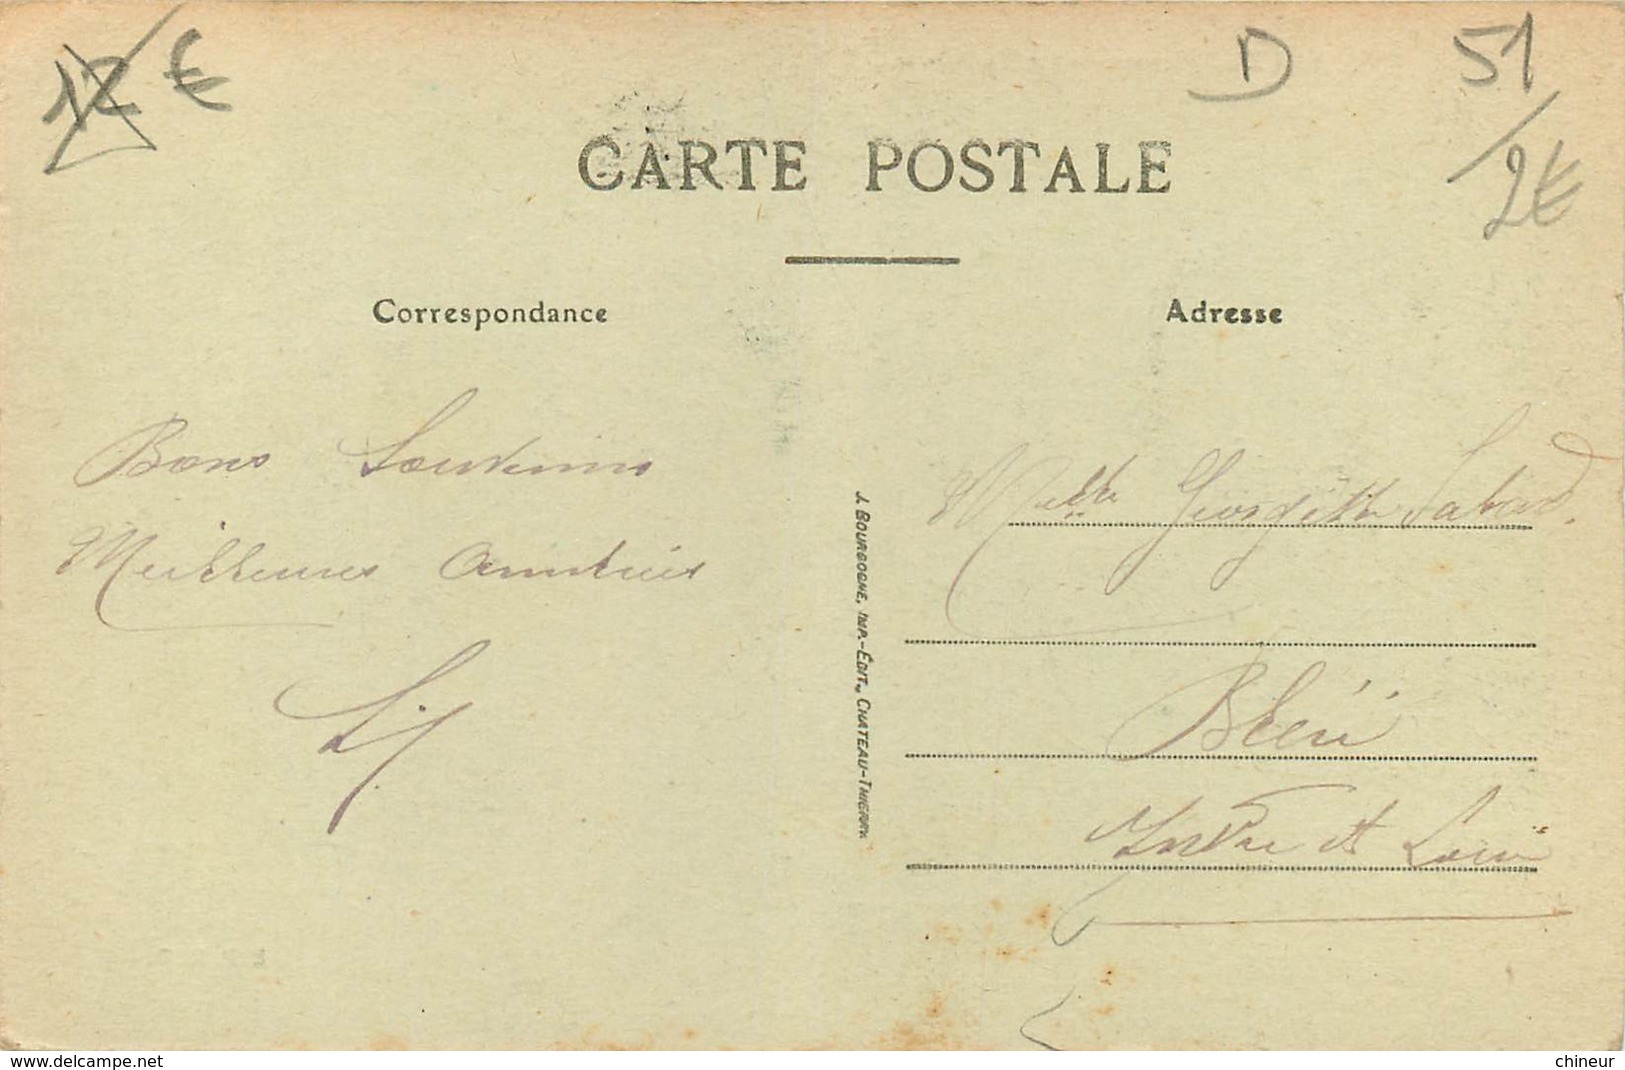 12 €
D 51
2€
CARTE POSTALE
Correspondance
Adresse
Bons Souvenirs
Meilleures amitiés
Melle Georgette
Bléré
Indre et Loire
J. BOURGOGNE, IMP.-ÉDIT., CHATEAU-THIERRY
www.delcampe.net
chineur